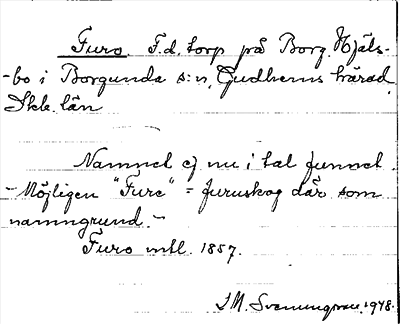 Furo. F.d. torp på Borg. Hjäls-
-bo i Borgunda s:n, Gudhems härad,
Skb. län
Namnet ej nu i tal funnet.
- Möjligen "Fure" = furuskog där som
namngrund. -
Furo mtl. 1857.
J M. Svenungsson. 1948.